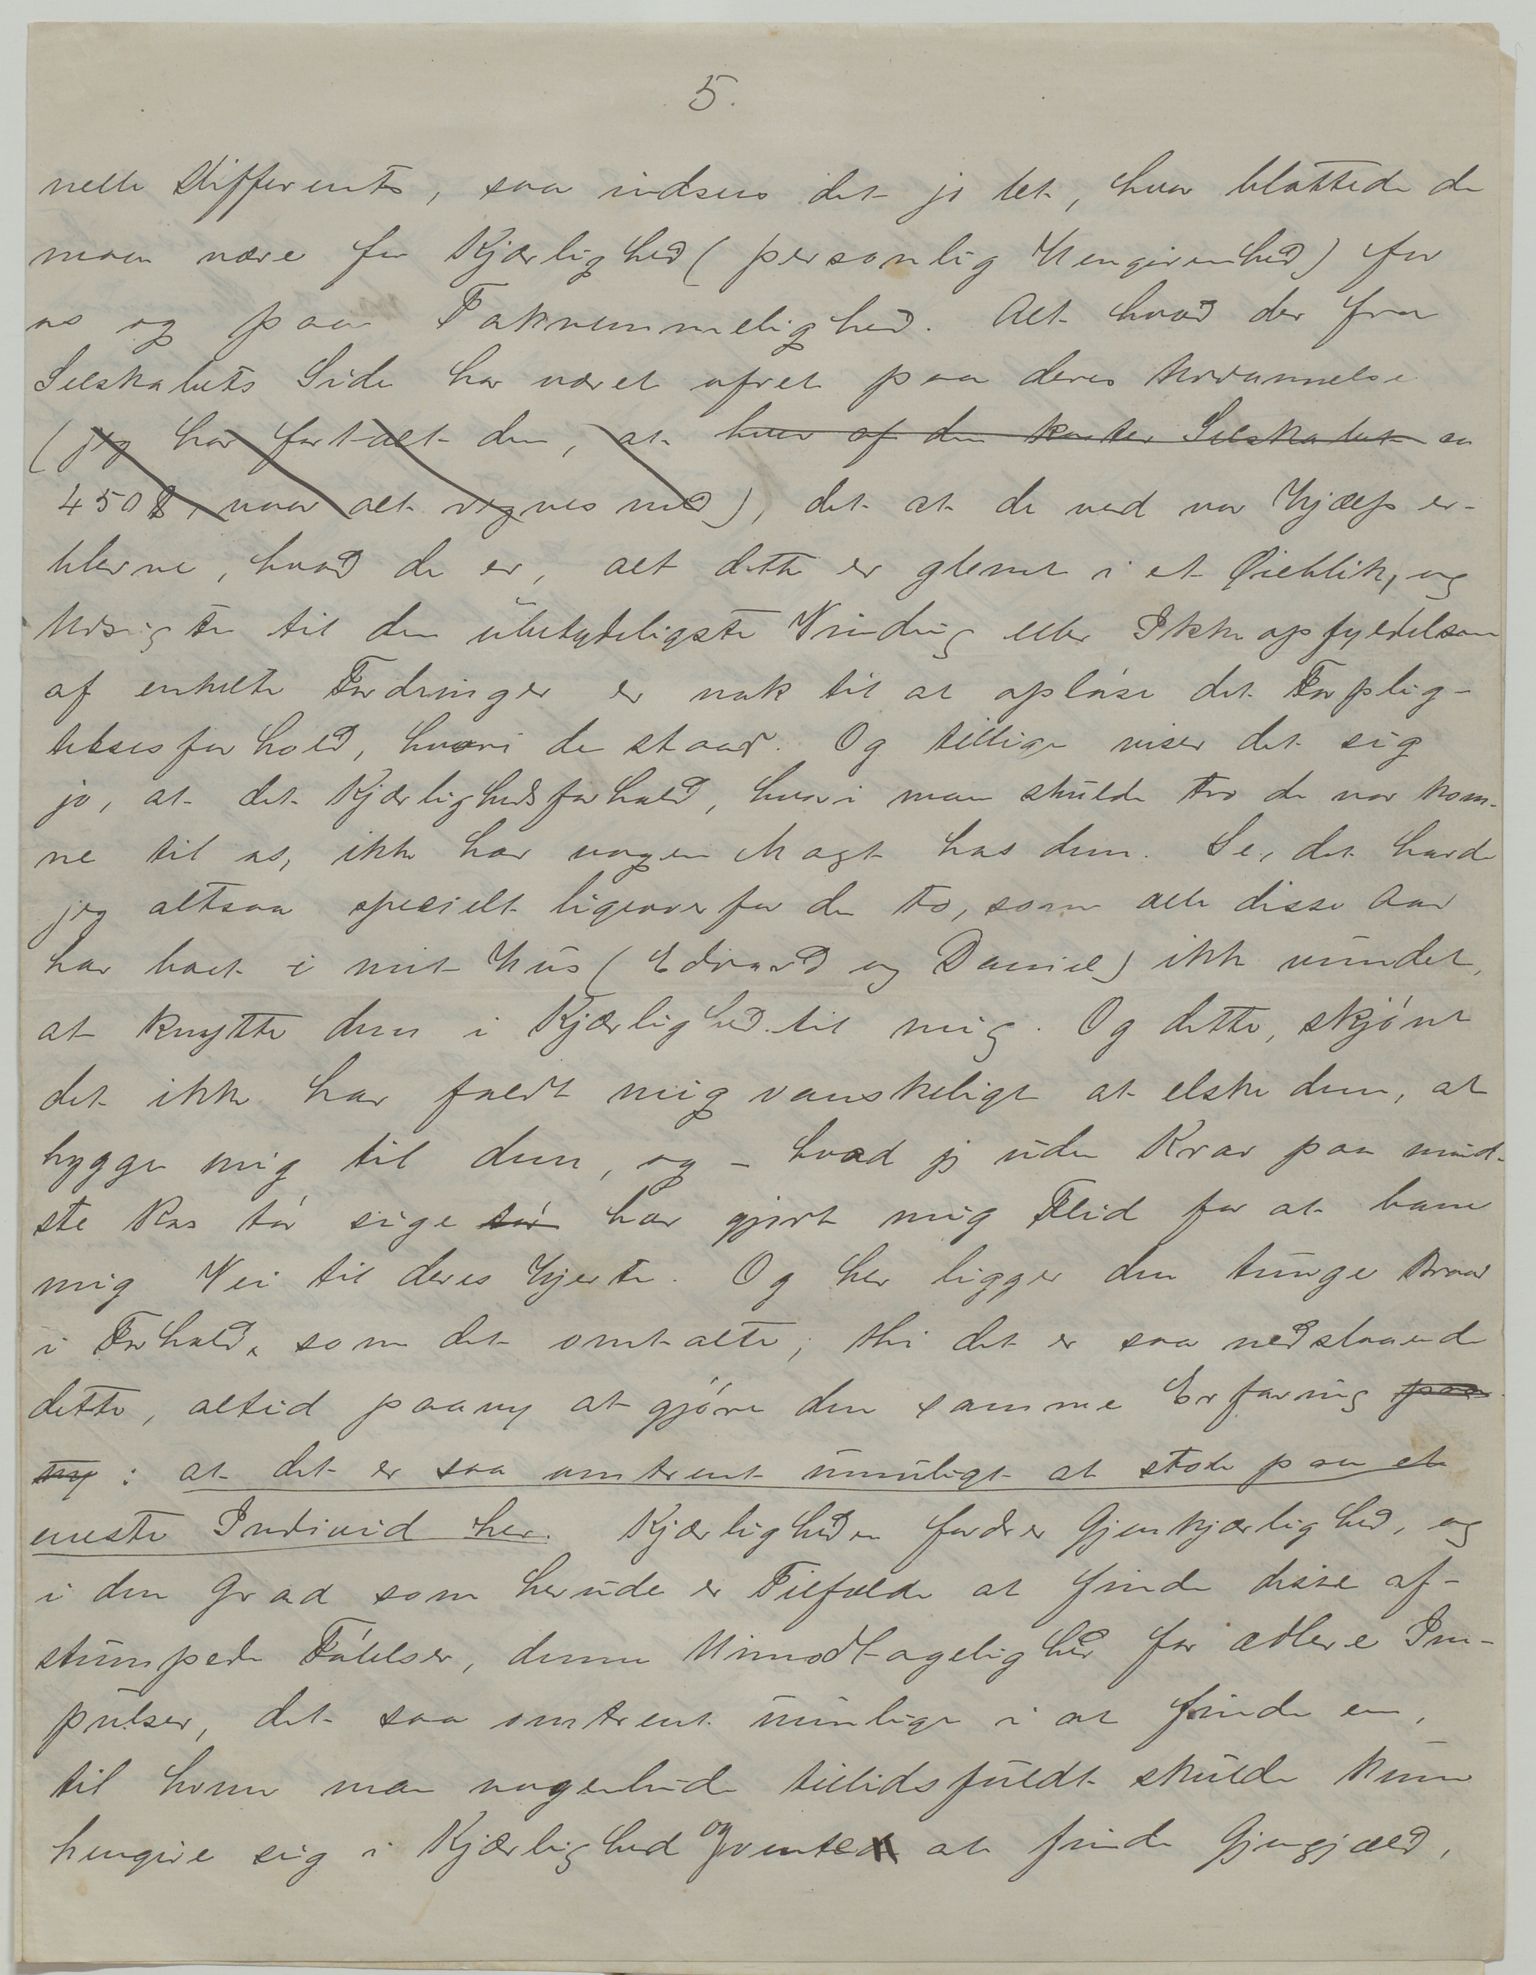 5.
nelle Differents, saa indsees det jo let, hvor blottede de
maa være for Kjærlighed (personlig Hengivenhed) for
os og paa Taknemmelighed. Alt hvad der fra
Selskabets Side har været ofret paa deres Uddannelse
(jeg har fortalt dem, at hver af dem koster Selskabet ca
450£, naar alt regnes med), det at de ved vor Hjælp er
blevne, hvad de er, alt dette er glemt i et Øieblik, og
Udsigten til den ubetydeligste Vinding eller Ikkeopfyldelsen
af enkelte Fordringer er nok til at opløse det Forplig-
telsesforhold, hvori de staar. Og tillige viser det sig
jo, at det Kjærlighedsforhold, hvori man skulde tro de var kom-
ne til os, ikke har nogen Magt hos dem. Se, det havde
jeg altsaa specielt ligeoverfor de to, som alle disse Aar
har boet i mit Hus (Edvard og Daniel) ikke vundet,
at knytte dem i Kjærlighed til mig. Og dette, skjønt
det ikke har faldt mig vanskeligt at elske dem, at
hygge mig til dem, og – hvad jeg uden Krav paa mind-
ste Ros tør sige har gjort mig Flid for at bane
mig Vei til deres Hjerte. Og her ligger den tunge Braad
i Forhold, som det omtalte; thi det er saa nedslaaende
dette, altid paany at gjøre den samme Erfaring paa
ny : at det er saa omtrent umuligt at stole paa et
eneste Individ her. Kjærligheden fordrer Gjenkjærlighed, og
i den Grad som herude er Tilfælde at finde disse af-
stumpede Følelser, denne Uimodtagelighed for ædlere Im-
pulser, det saa omtrent umulige i at finde en,
til hvem man nogenlunde tillidsfuldt skulde kunne
hengive sig i Kjærlighed og vente at finde Gjengjæld,